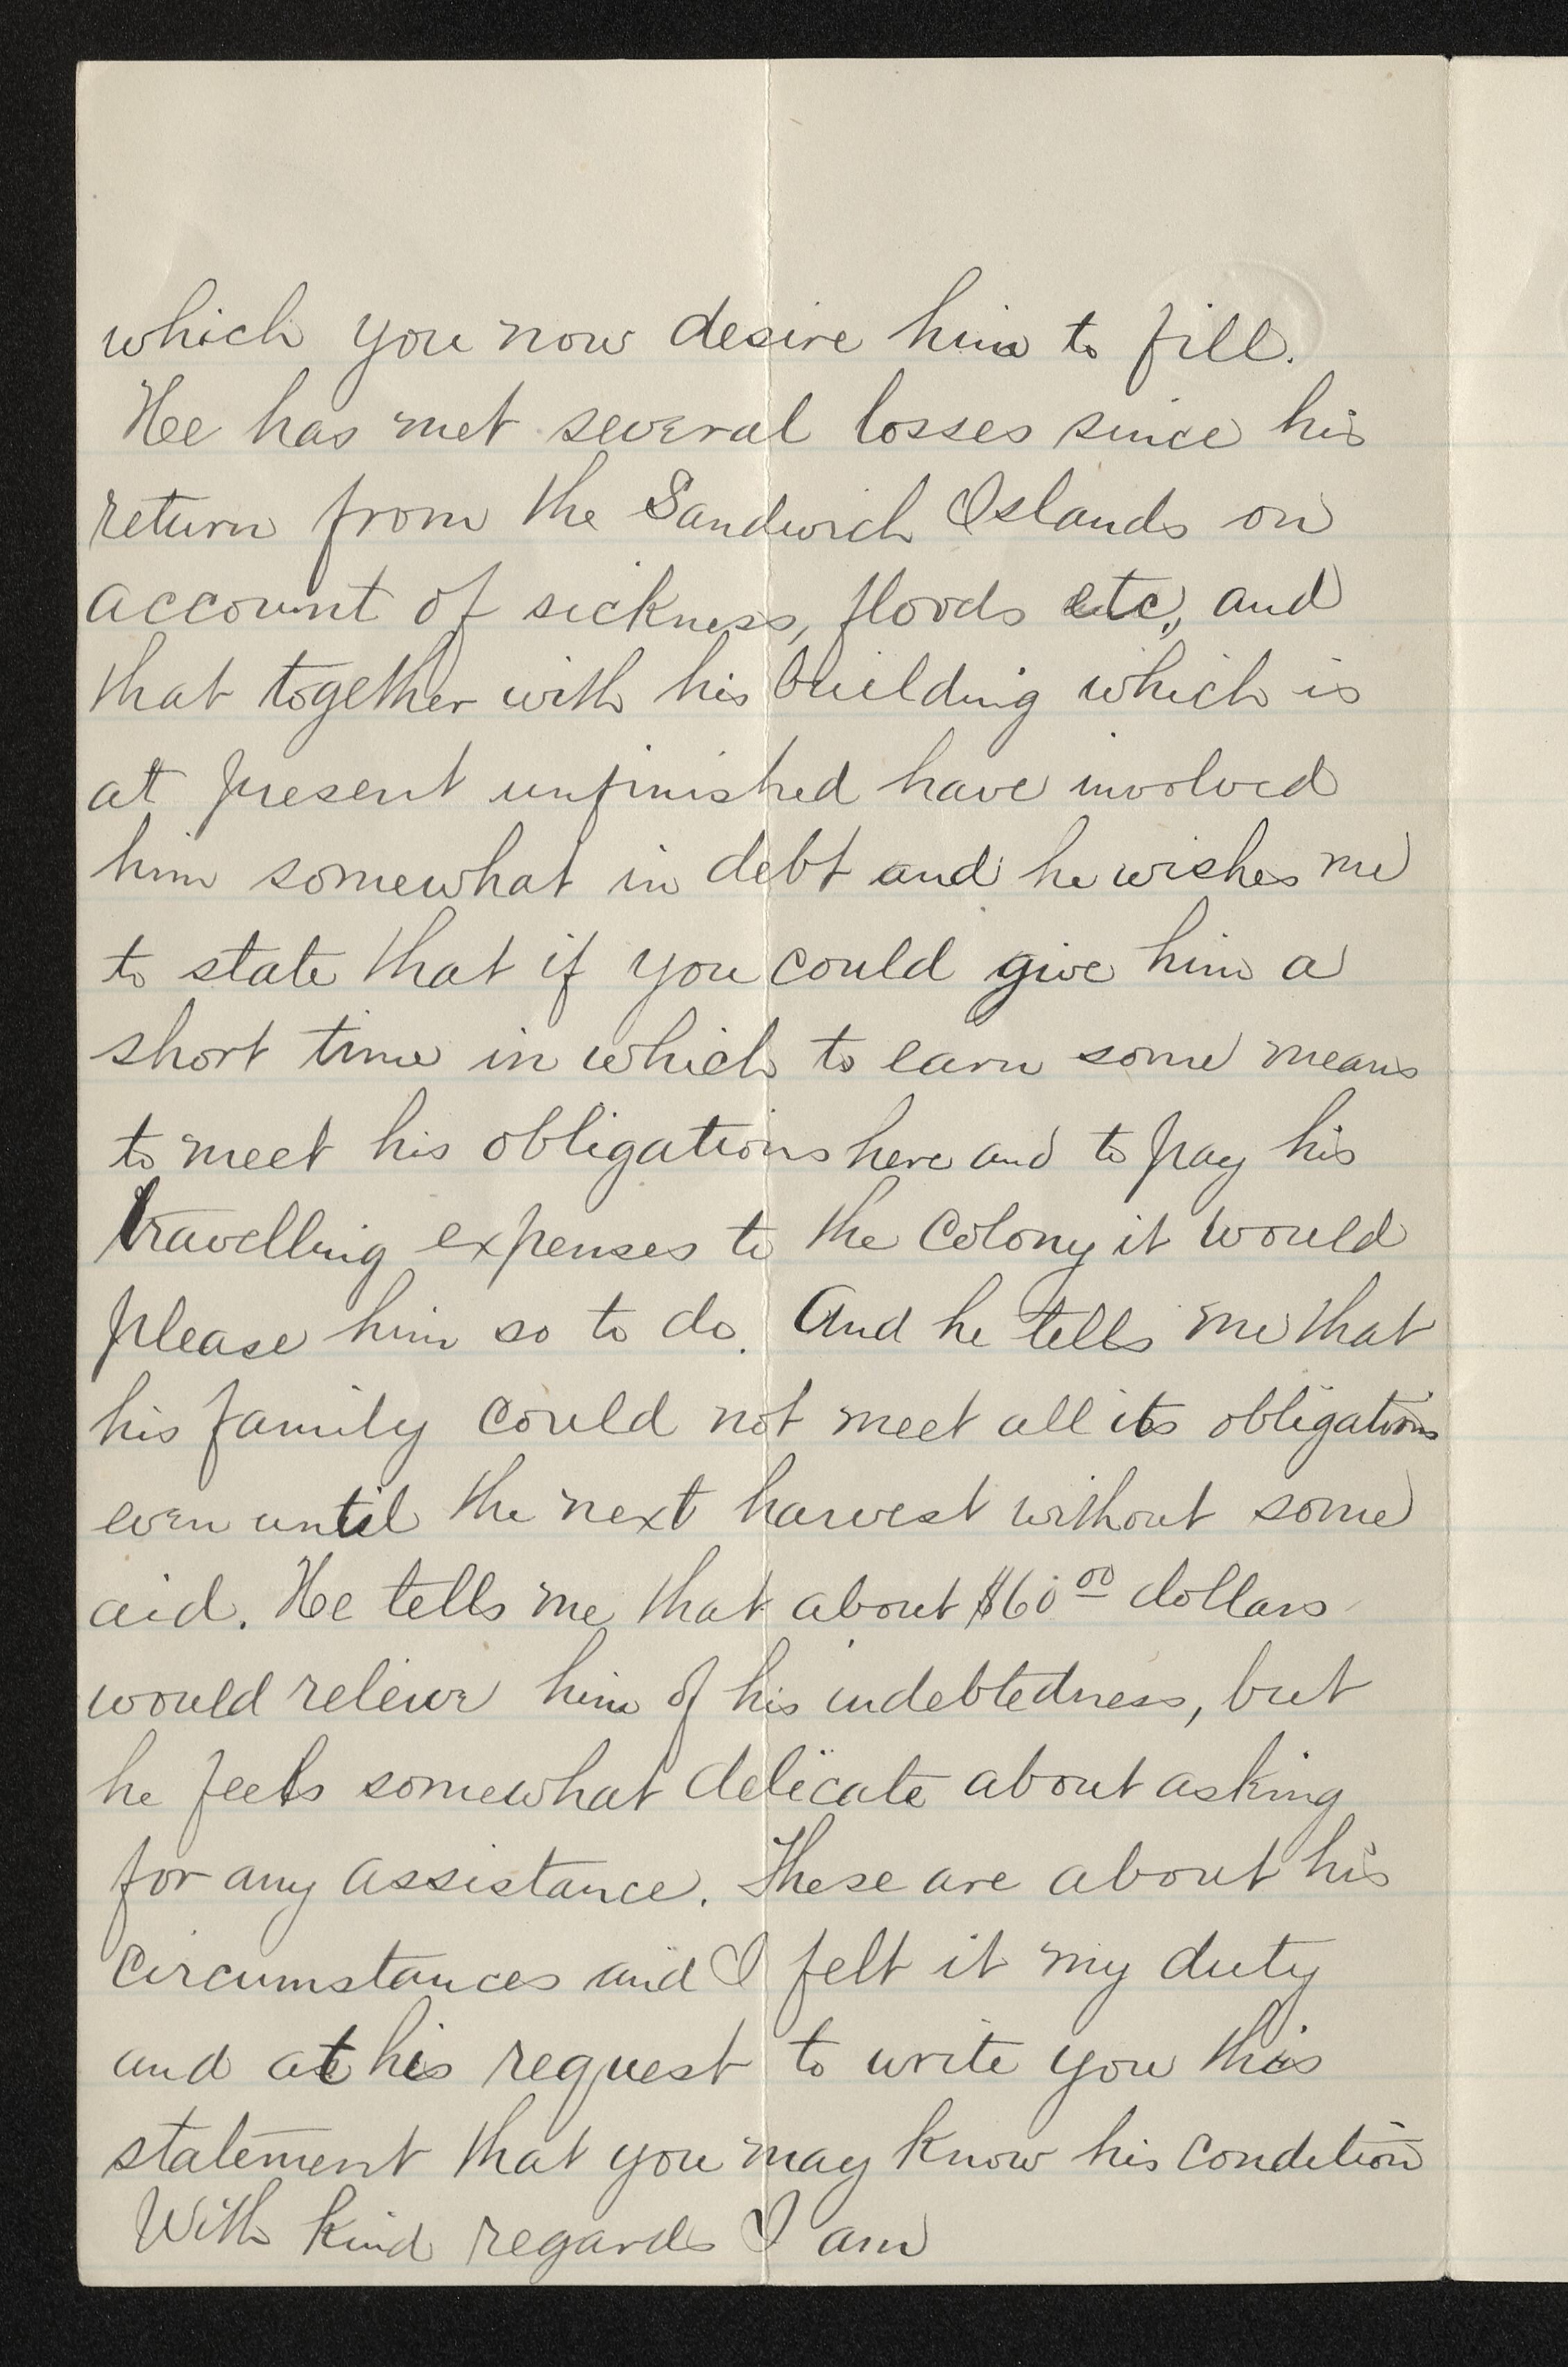 which you now desire him to fill.
He has met several losses since his
return from the Sandwich Islands on
account of sickness, floods etc, and
that together with his building which is
at present unfinished have involved
him somewhat in debt and he wishes me
to state that if you could give him a
short time in which to earn some means
to meet his obligations here and to pay his
travelling expenses to the Colony it would
please him so to do. And he tells me that
his family could not meet all its obligations
even until the next harvest without some
aid. He tells me that about $60 00 dollars
would releive him of his indebtedness, but
he feels somewhat delicate about asking
for any assistance. These are about his
circumstances and I felt it my duty
and at his request to write you this
statement that you may know his condition
With kind regards I am